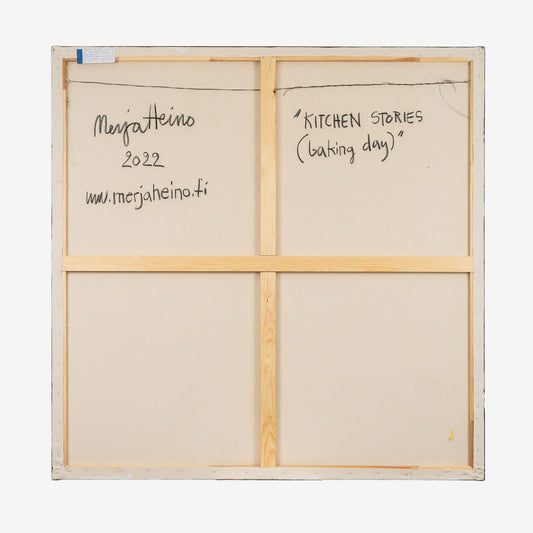 Merja Heino
2022
www.merjaheino.fi
"KITCHEN STORIES
(baking day)"